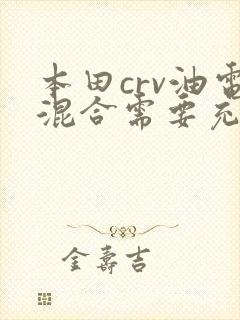 本田crv油電
混合需要充
金壽吉